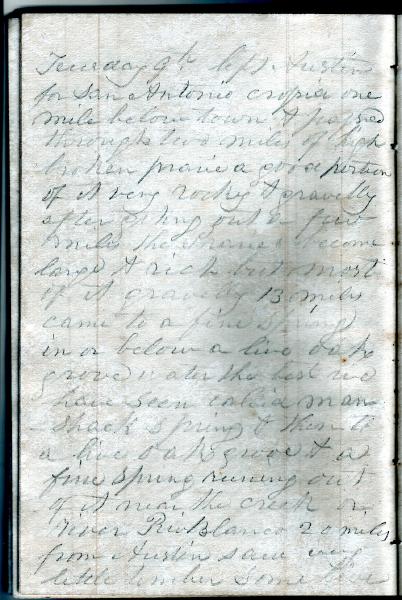 Teusday 9th left Austin
for San Antonio cropied one
mile below town & passed
through two miles of high
broken praire a good portion
of it very rocky & gravelly
after geting out a few
miles the praires become
large & rich but most
of it gravelly 13 miles
came to a fine spring
in or below a live oak
grove water the best we
have seen called man
shack spring & then to
a live oak grove & a
fine spring running out
of it near the creek or
river Rio Blanco 20 miles
from Austin saw very
little timber some live